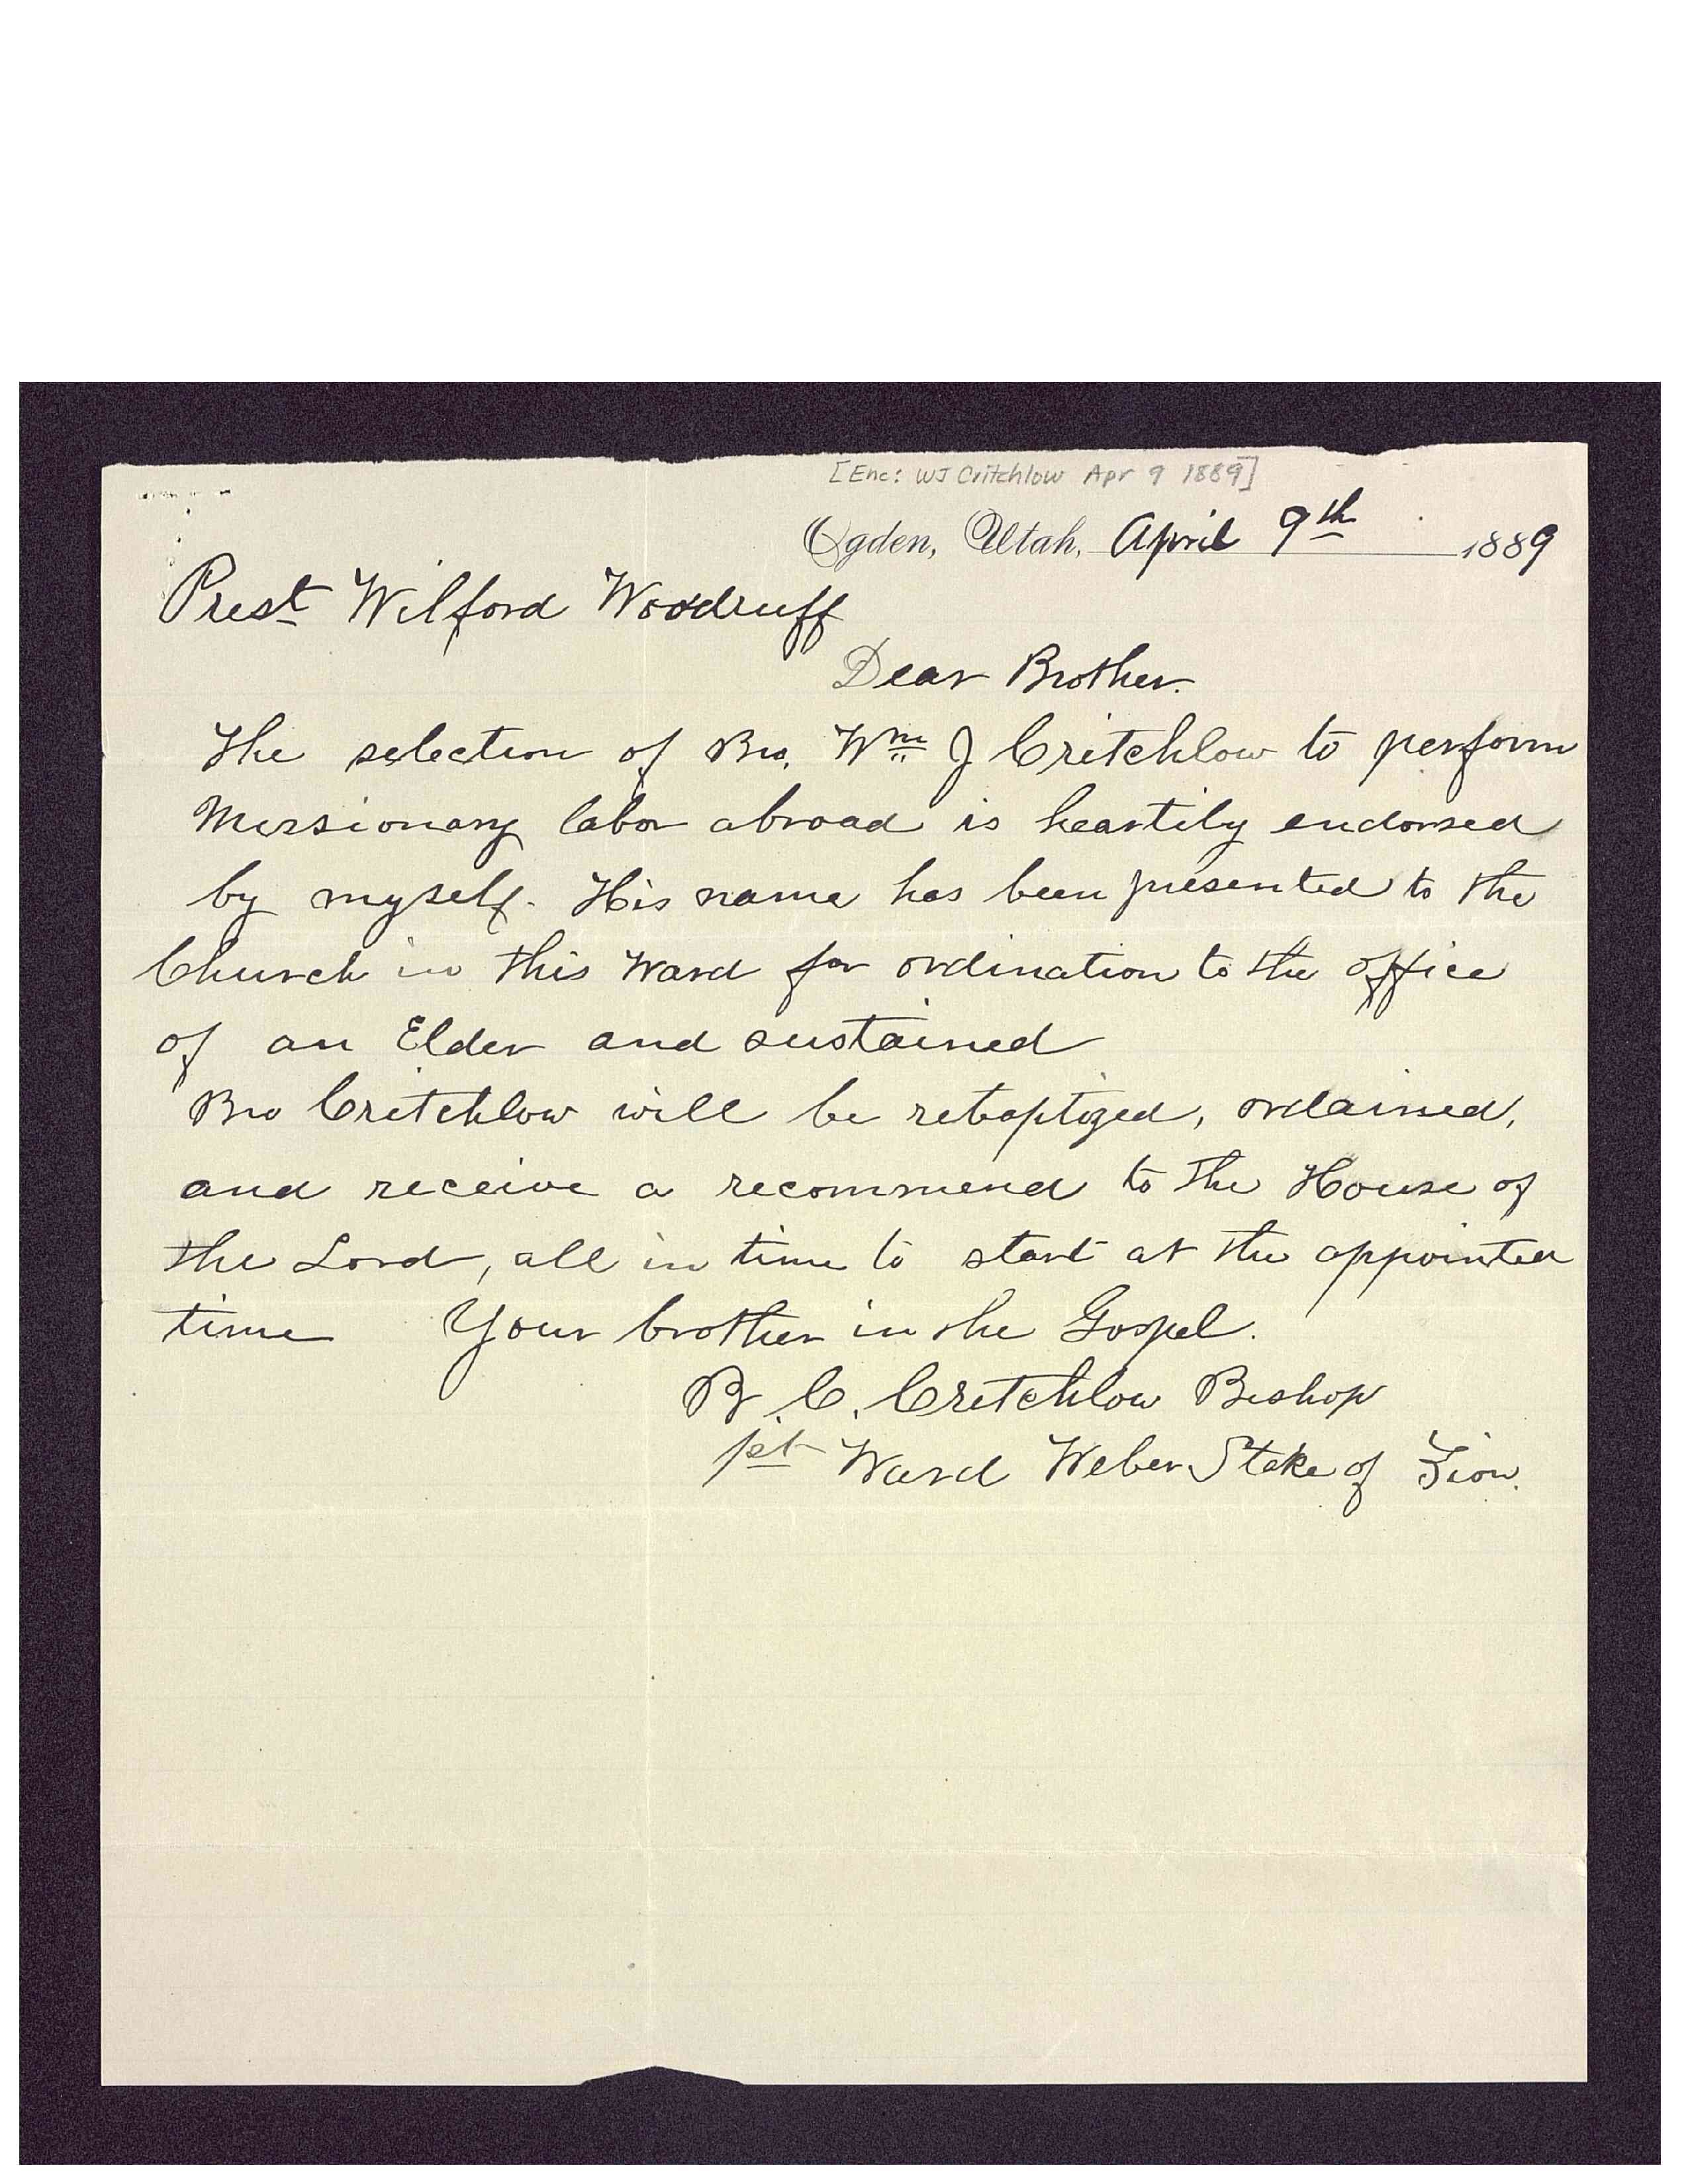 [Enc: WJ Critchlow Apr 9 1889]
Ogden, Utah, April 9th 1889
Prest Wilford Woodruff
Dear Brother.
The selection of Bro. Wm J Critchlow to perform
Missionary labor abroad is heartily endorsed
by myself. His name has been presented to the
Church in this Ward for ordination to the office
of an Elder and sustained
Bro Critchlow will be rebaptized, ordained,
and receive a recommend to the House of
the Lord, all in time to start at the appointed
time Your brother in the Gospel.
B. C. Critchlow Bishop
1st Ward Weber Stake of Zion.